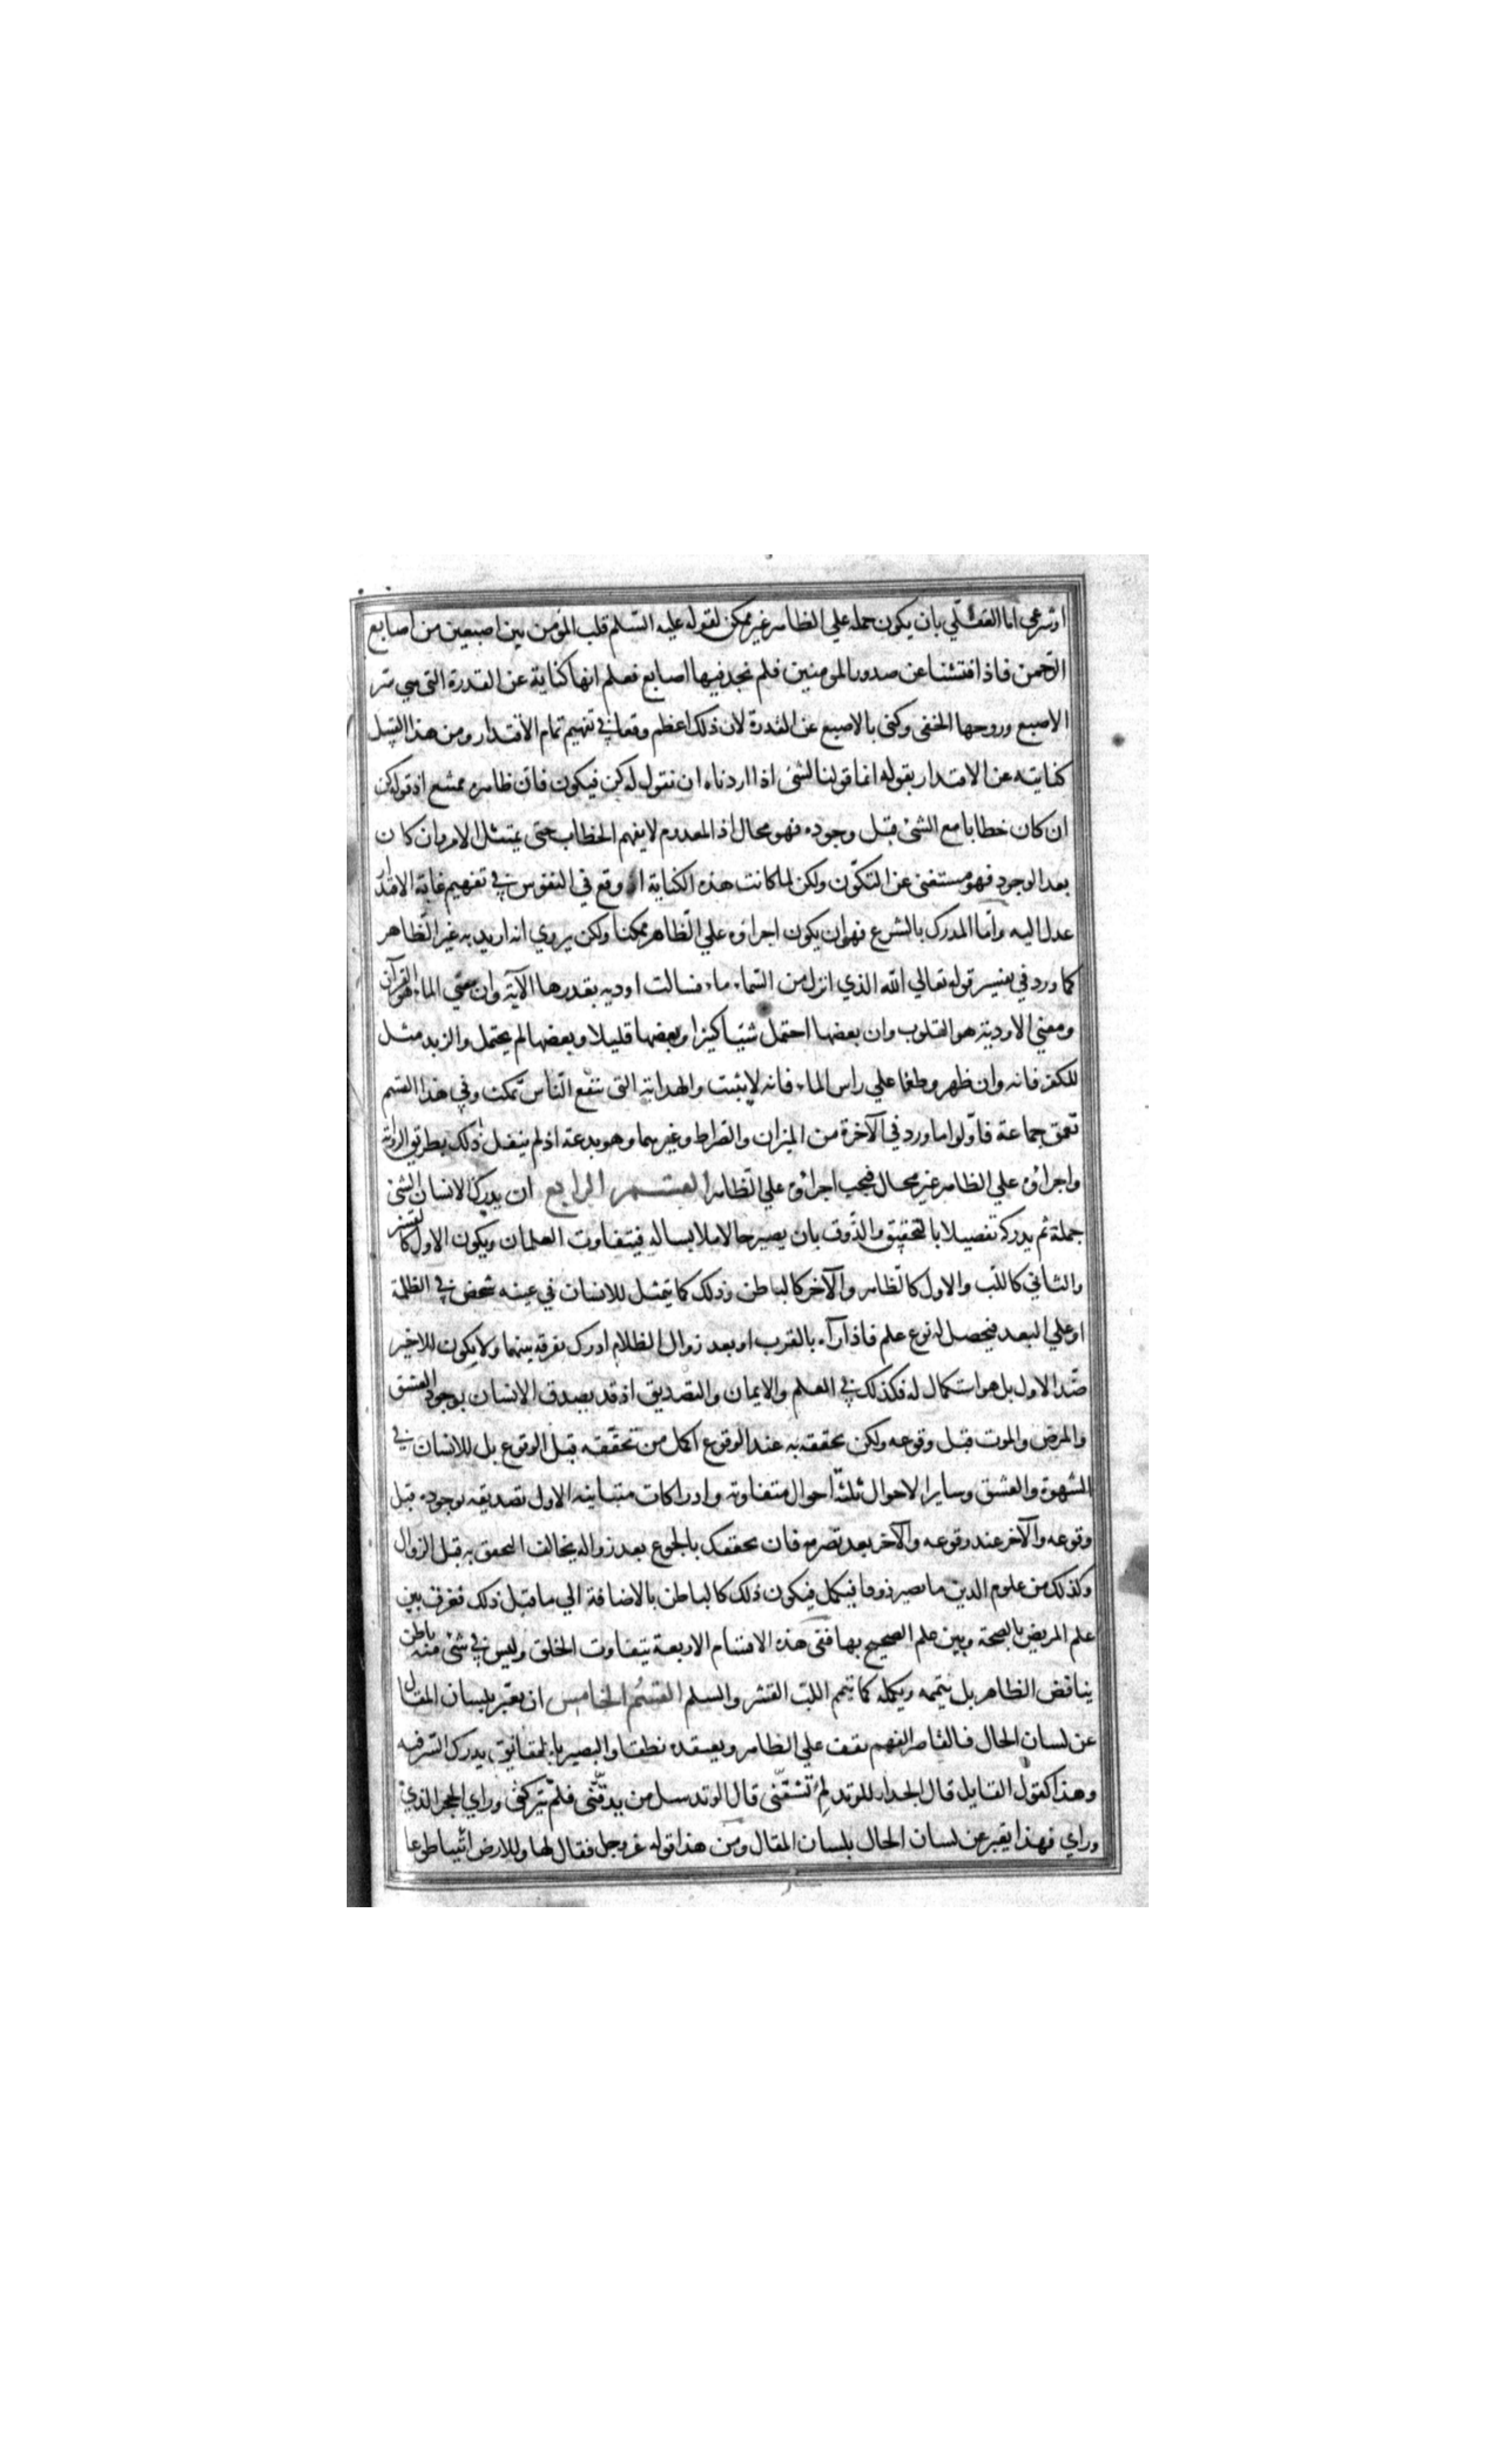 او شرعي اما العقلي بان يكون حمله علي الظاهر غير ممكن لقوله عليه السّلم قلب المؤمن بين اصبعين من اصابع
الرّحمن فاذا فتشنا عن صدور المومنين فلم نجد فيها اصابع فعلم انها كناية عن القدرة التي هي سر
الاصبع وروحها الخفى وكنى بالاصبع عن القدرة لان ذلك اعظم وقعا في تفهيم تمام الاقتدار ومن هذا القبيل
كنايته عن الاقتدار بقوله انما قولنا لشئ اذا اردناه ان نقول له كن فيكون فان ظاهره ممتنع اذ قوله كن
ان كان خطابا مع الشئ قبل وجوده فهو محال اذ المعدوم لا يفهم الخطاب حتى يمتثل الامر وان كان
بعد الوجود فهو مستغنى عن التكوّن ولكن لما كانت هذه الكناية اوقع في النفوس في تفهيم غاية الاقتدار
عدل اليه وامّا المدرك بالشرع فهو ان يكون اجراؤه علي الظّاهر ممكنا ولكن يروي انه اريد به غير الظّاهر
كما ورد في تفسير قوله تعالي الله الذي انزل من السّماء ماء فسالت اودية بقدرها الآية وان معني الماء هو القرآن
ومعني الاودية هو القلوب وان بعضها احتمل شيّا كثيرا وبعضها قليلا وبعضها لم يحتمل والزبد مثل
للكفر فانه وان ظهر وطفا علي راس الماء فانه لا يثبت والهداية التي تنفع النّاس تمكث وفي هذا القسم
تعمق جماعة فاوّلوا ما ورد في الآخرة من الميزان والصّراط وغيرهما وهو بدعة اذ لم ينقل ذلك بطريق الرواية
واجراؤه علي الظاهر غير محال فيجب اجراؤه علي الظّاهر القسم الرابع ان يدرك الانسان الشئ
جملة ثم يدركه تفصيلا بالتحقيق والذّوق بان يصير حالا ملابسا له فيتفاوت العلمان ويكون الاول كالقشر
والثاني كاللبّ والاول كالظّاهر والآخر كالباطن وذلك كما يتمثل للانسان في عينه شخص في الظلمة
او علي البعد فيحصل له نوع علم فاذا رآه بالقرب او بعد زوال الظلام ادرك تفرقة بينهما ولا يكون للاخير
ضّد الاول بل هو استكمال له فكذلك في العلم والايمان والتصديق اذ قد يصدق الانسان بوجود العشق
والمرض والموت قبل وقوعه ولكن تحققه به عند الوقوع اكمل من تحقّقه قبل الوقوع بل للانسان في
الشهوة والعشق وساير الاحوال ثلثة احوال متفاوتة وادراكات متباينه الاول تصديقه بوجوده قبل
وقوعه والآخر عند وقوعه والآخر بعد تصرمه فان تحققك بالجوع بعد زواله يخالف التحقق به قبل الزوال
وكذلك من علوم الدين ما يصير ذوقا فيكمل فيكون ذلك كالباطن بالاضافة الي ما قبل ذلك ففرق بين
علم المريض بالصحة وبين علم الصحيح بها ففي هذه الاقسام الاربعة يتفاوت الخلق وليس في شئ منه باطن
يناقض الظاهر بل يتممه ويكمله كما يتمم اللبّ القشر والسلم القسم الخامس ان يعبّر بلسان المقال
عن لسان الحال فالقاصر الفهم يقف علي الظاهر ويعتقده نطقا والبصير بالحقائق يدرك السّر فيه
وهذا كقول القايل قال الجدار للوتد لِمَ تشقّنى قال الوتد سل من يدقّنى فلم يتركنى وراي الحجر الذي
وراي فهذا يعبر عن لسان الحال بلسان المقال ومن هذا قوله عز وجل فقال لها وللارض ائتيا طوعا